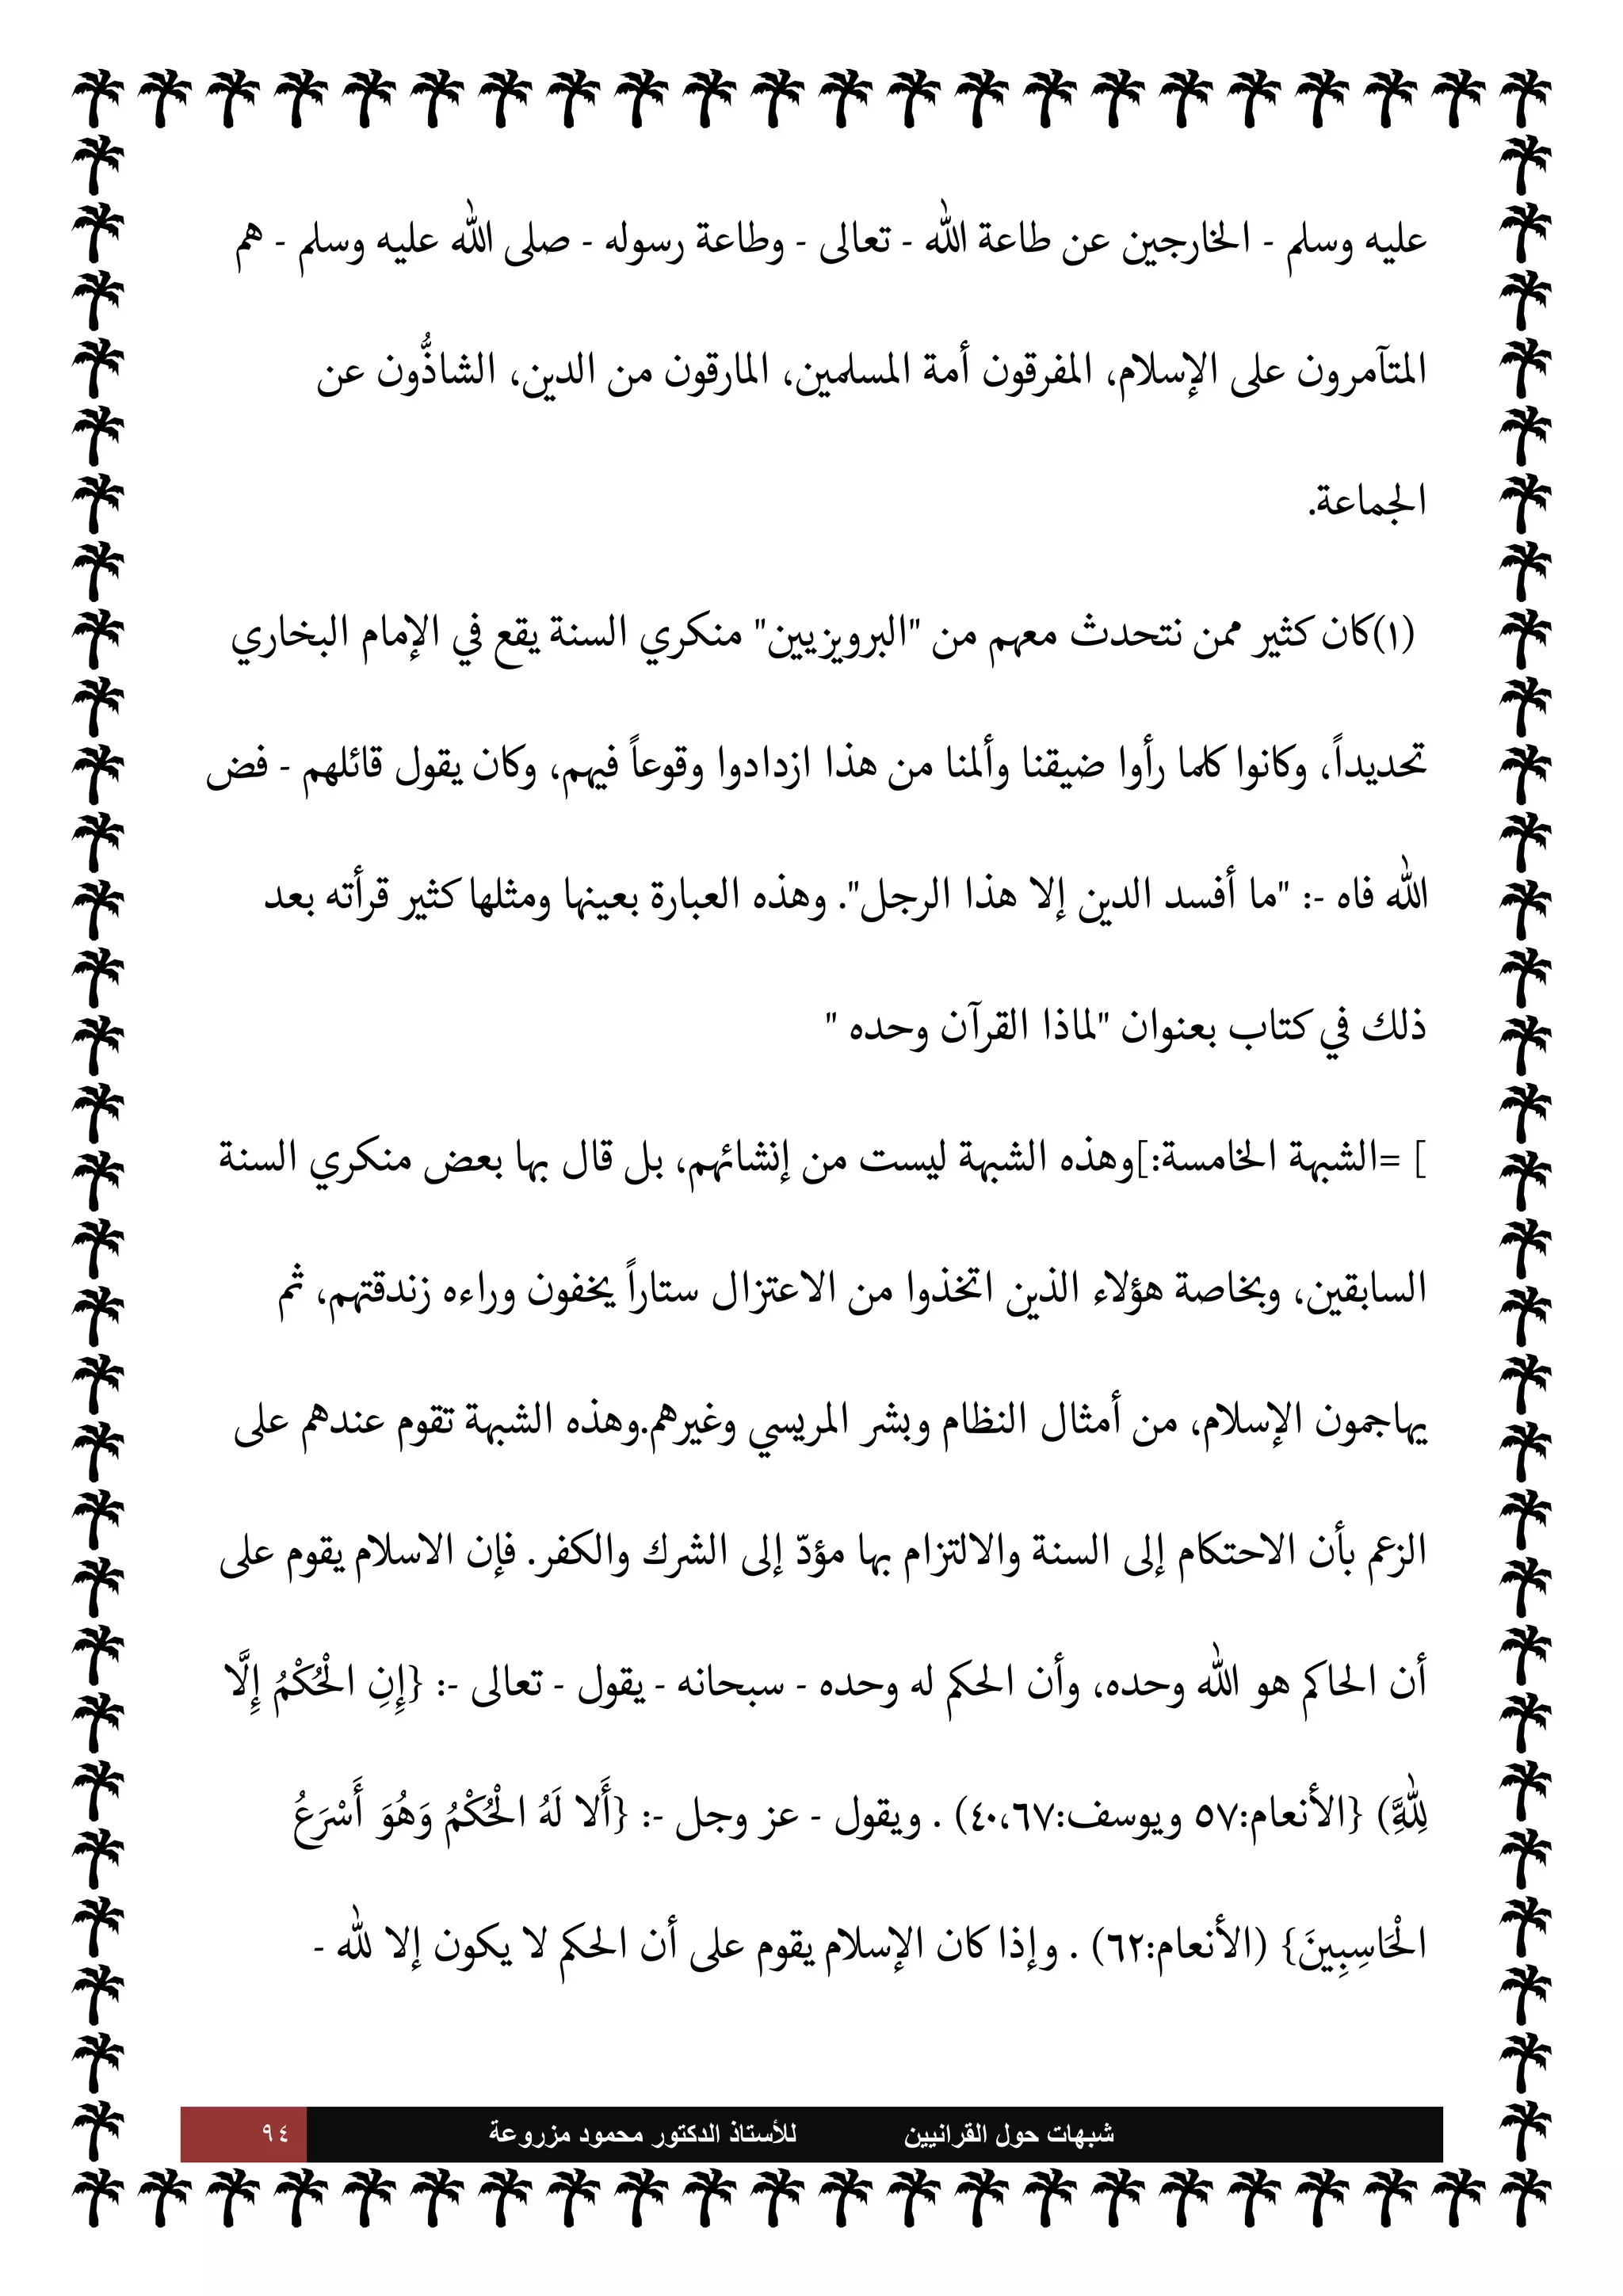 عليه وسلم - الخارجين عن طاعة الله - تعالى - وطاعة رسوله - صلى الله عليه وسلم - هم
المتآمرون على الإسلام، المفرقون أمة المسلمين، المارقون من الدين، الشاذُّون عن
الجماعة.
(١)كان كثير ممن نتحدث معهم من "البرويزيين" منكري السنة يقع في الإمام البخاري
تحديداً، وكانوا كلما رأوا ضيقنا وألمنا من هذا ازدادوا وقوعاً فيهم، وكان يقول قائلهم - فض
الله فاه -: "ما أفسد الدين إلا هذا الرجل". وهذه العبارة بعينها ومثلها كثير قرأته بعد
ذلك في كتاب بعنوان "لماذا القرآن وحده "
] =الشبهة الخامسة:]وهذه الشبهة ليست من إنشائهم، بل قال بها بعض منكري السنة
السابقين، وبخاصة هؤلاء الذين اتخذوا من الاعتزال ستاراً يخفون وراءه زندقتهم، ثم
يهاجمون الإسلام، من أمثال النظام وبشر المريسي وغيرهم.وهذه الشبهة تقوم عندهم على
الزعم بأن الاحتكام إلى السنة والالتزام بها مؤدّ إلى الشرك والكفر. فإن الاسلام يقوم على
أن الحاكم هو الله وحده، وأن الحكم له وحده - سبحانه - يقول - تعالى -: {إِنِ الْحُكْمُ إِلَّا
لِلَّهِ) {الأنعام:٥٧ ويوسف:٤٠،٦٧) . ويقول - عز وجل -: {أَلا لَهُ الْحُكْمُ وَهُوَ أَسْرَعُ
الْحَاسِبِينَ} (الأنعام:٦٢) . وإذا كان الإسلام يقوم على أن الحكم لا يكون إلا لله -
شبهات حول القرانيين للأستاذ الدكتور محمود مزروعة ٩٤